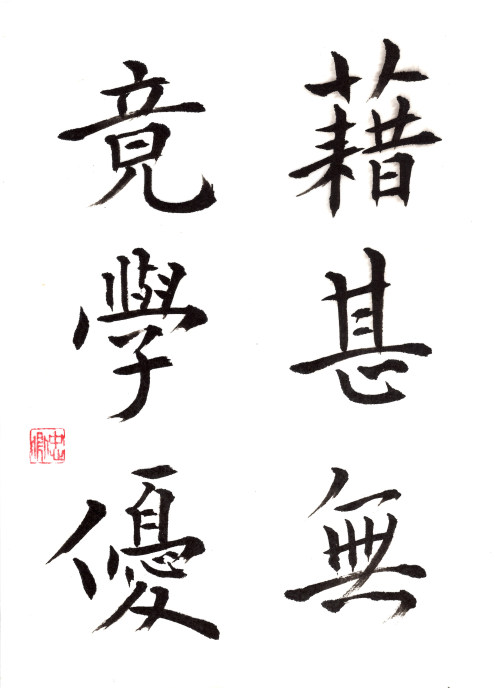 藉甚無
竟學優